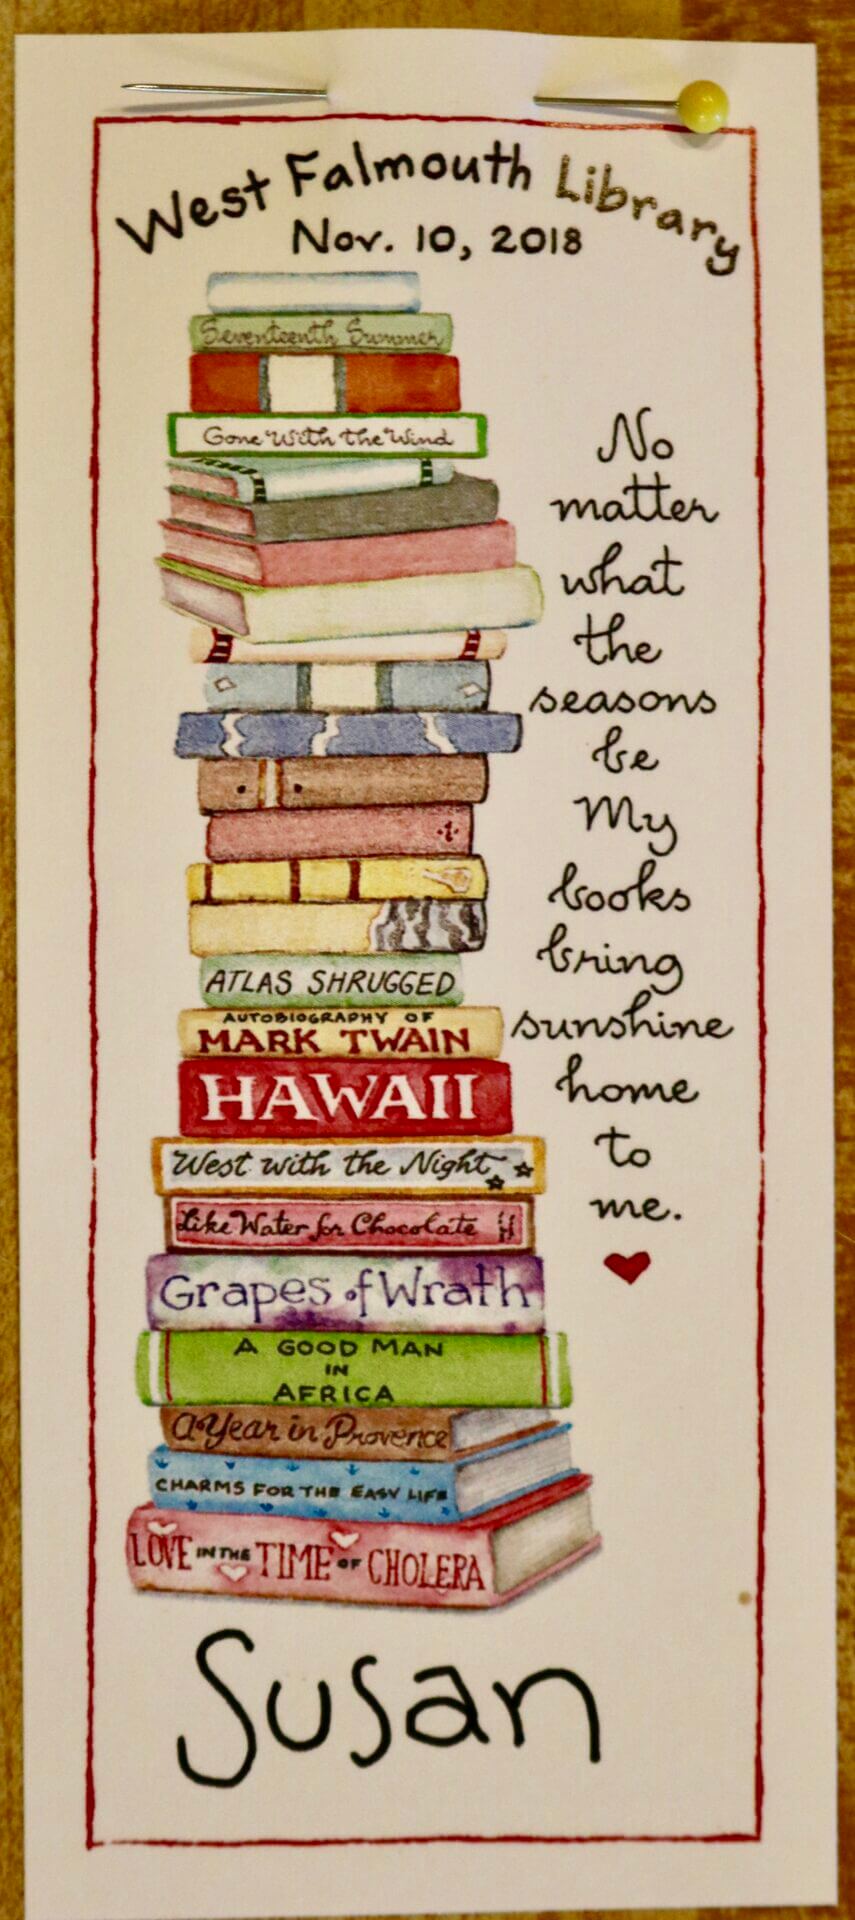 West Falmouth Library
Nov. 10, 2018
Seventeenth Summer
Gone With the Wind
No
matter
what
the
seasons
be
My
books
bring
sunshine
home
to
me.
ATLAS SHRUGGED
AUTOBIOGRAPHY OF
MARK TWAIN
HAWAII
West with the Night
Like Water for Chocolate
Grapes of Wrath
A GOOD MAN
IN
AFRICA
A Year in Provence
CHARMS FOR THE EASY LIFE
LOVE IN THE TIME OF CHOLERA
Susan